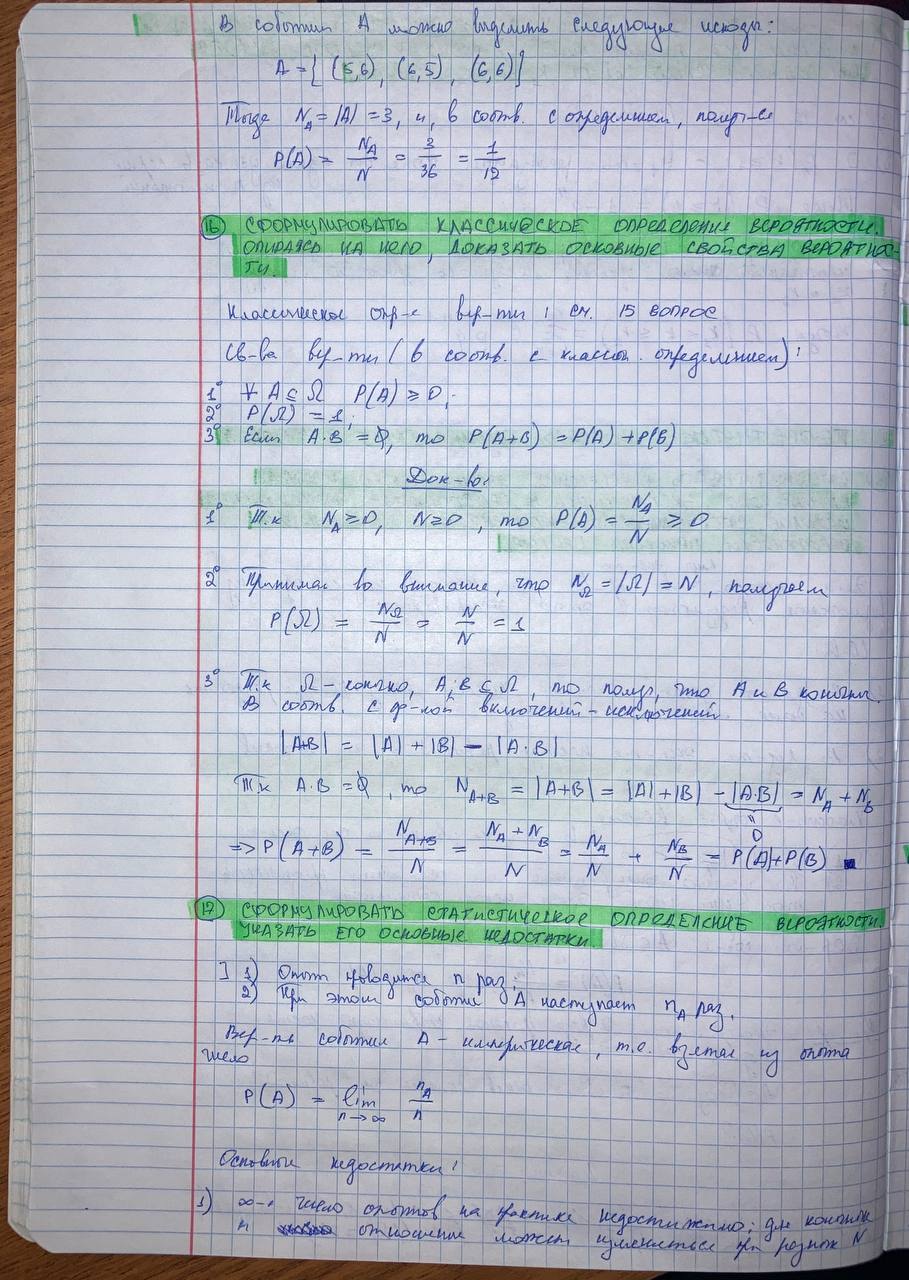 В событии A можно выделить следующие исходы:
A = { (5,6), (6,5), (6,6) }
Тогда N_A = |A| = 3, и, в соотв. с определением, получ-ся
P(A) = N_A/N = 3/36 = 1/12
16) СФОРМУЛИРОВАТЬ КЛАССИЧЕСКОЕ ОПРЕДЕЛЕНИЕ ВЕРОЯТНОСТИ.
ОПИРАЯСЬ НА НЕГО, ДОКАЗАТЬ ОСНОВНЫЕ СВОЙСТВА ВЕРОЯТНОС-
ТИ.
Классическое опр-е вер-ти: см. 15 ВОПРОС
Св-ва вер-ти (в соотв. с классич. определением):
1° ∀ A ⊆ Ω P(A) ≥ 0;
2° P(Ω) = 1;
3° Если A·B = ∅, то P(A+B) = P(A) + P(B)
Док-во:
1° Т.к N_A ≥ 0, N ≥ 0, то P(A) = N_A/N ≥ 0
2° Принимая во внимание, что N_Ω = |Ω| = N, получаем
P(Ω) = N_Ω/N = N/N = 1
3° Т.к Ω - конечно, A, B ⊆ Ω, то получ, что A и B конечны.
В соотв. с ф-лой включений-исключений
|A+B| = |A| + |B| - |A·B|
Т.к A·B = ∅, то N_{A+B} = |A+B| = |A| + |B| - |A·B| = N_A + N_B
" 0
=> P(A+B) = N_{A+B}/N = (N_A + N_B)/N = N_A/N + N_B/N = P(A)+P(B) ■
17) СФОРМУЛИРОВАТЬ СТАТИСТИЧЕСКОЕ ОПРЕДЕЛЕНИЕ ВЕРОЯТНОСТИ.
УКАЗАТЬ ЕГО ОСНОВНЫЕ НЕДОСТАТКИ.
] 1) Опыт проводится n раз;
2) При этом событие A наступает n_A раз.
Вер-ть события A - эмпирическая, т.е. взятая из опыта
число
P(A) = lim_{n→∞} n_A/n
Основные недостатки:
1) ∞-е число опытов на практике недостижимо; для конечных
n отношение может изменяться при разных N